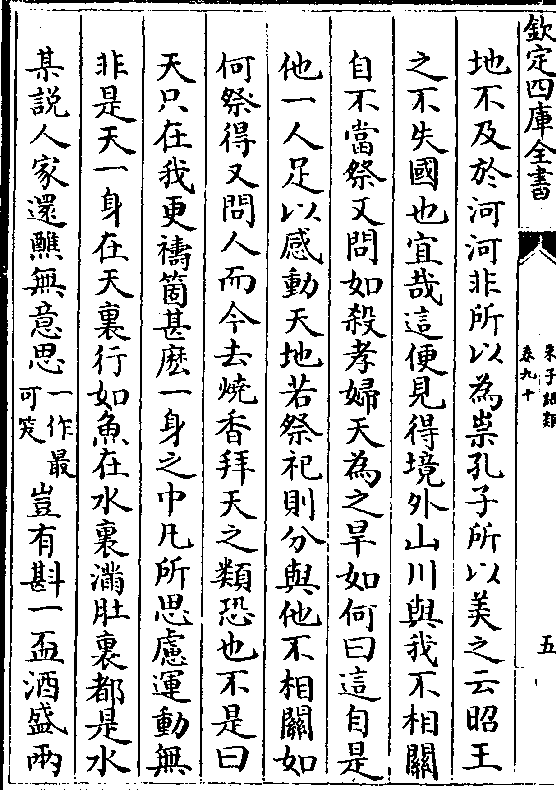 欽定四庫全書
朱子語類
卷九十
五
地不及於河河非所以為祟孔子所以美之云昭王
之不失國也宜哉這便見得境外山川與我不相關
自不當祭又問如殺孝婦天為之旱如何曰這自是
他一人足以感動天地若祭祀則分與他不相關如
何祭得又問人而今去燒香拜天之類恐也不是曰
天只在我更禱箇甚麽一身之中凡所思慮運動無
非是天一身在天裏行如魚在水裏滿肚裏都是水
某説人家還醮無意思一作最可笑豈有斟一盃酒盛兩